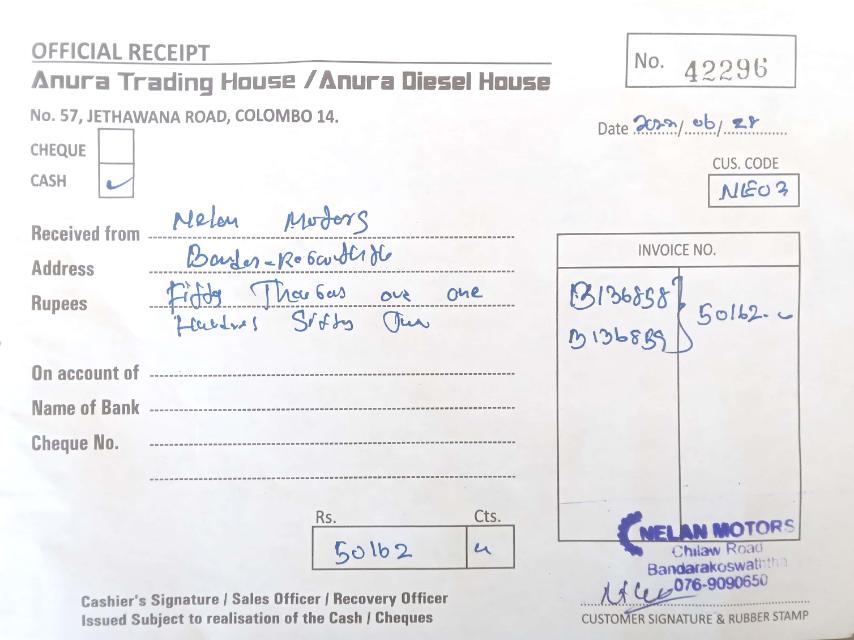 OFFICIAL RECEIPT
No. 42296
Anura Trading House / Anura Diesel House
No. 57, JETHAWANA ROAD, COLOMBO 14.
Date 2022/06/28
CHEQUE
CUS. CODE
CASH ✓
NLE03
Received from Nelan Motors
INVOICE NO.
Address
Rupees Fifty one
B136858
50162.
Hundred Sixty Two
B136859
On account of
Name of Bank
Cheque No.
Rs. Cts.
50162
NELAN MOTORS
Chilaw Road
Bandarakoswaththa
076-9090650
Cashier's Signature / Sales Officer / Recovery Officer
Issued Subject to realisation of the Cash / Cheques
CUSTOMER SIGNATURE & RUBBER STAMP